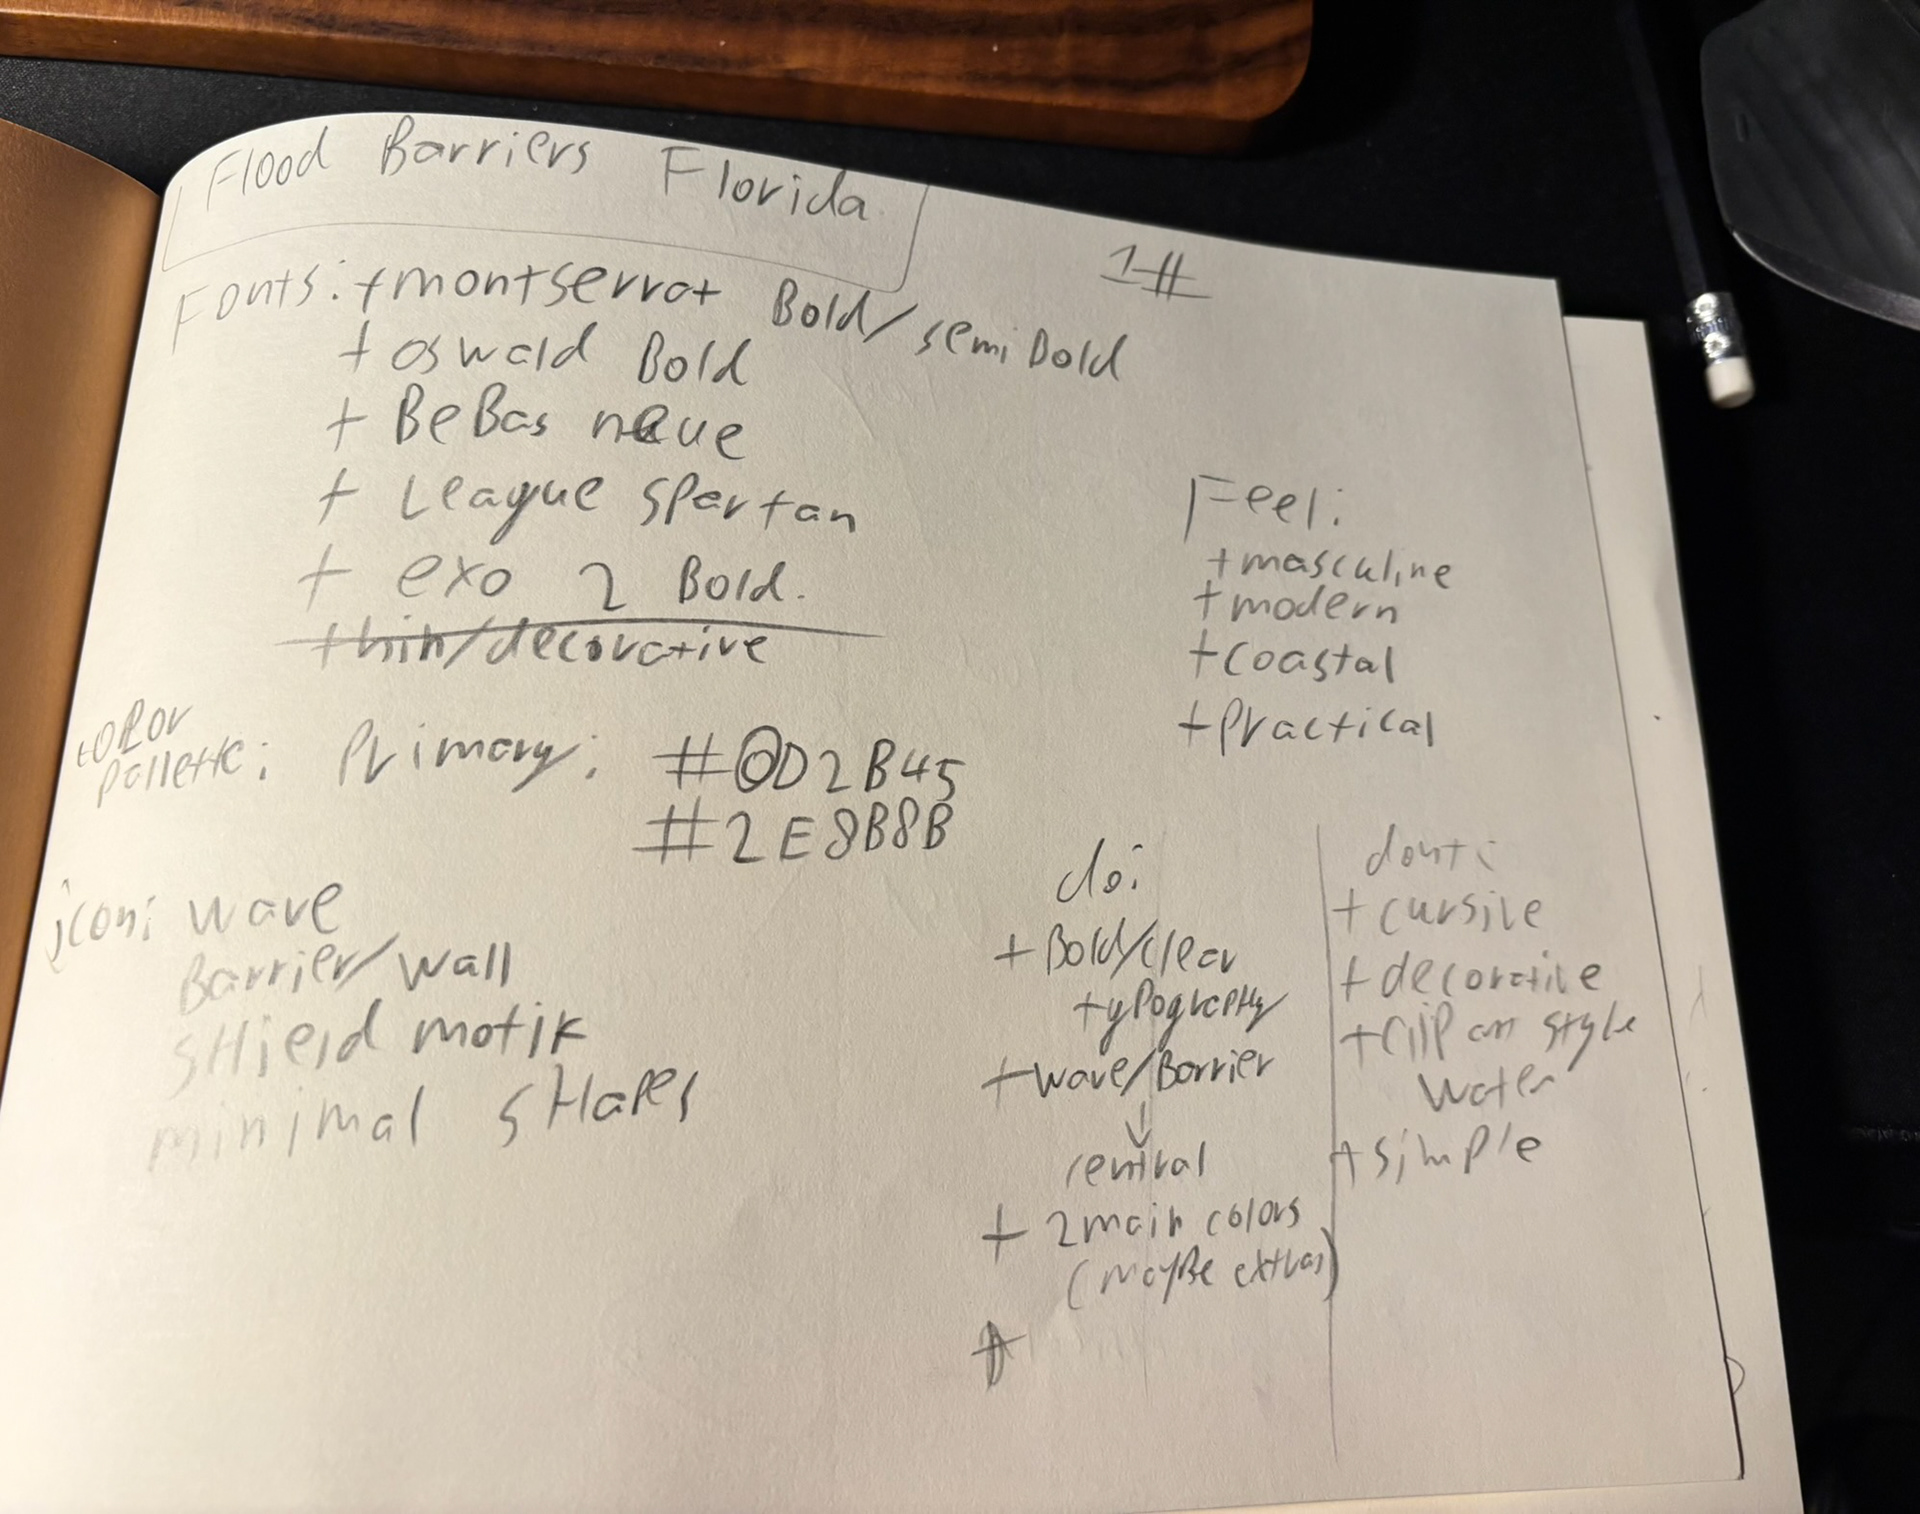 Flood Barriers Florida
1#
Fonts: +montserrat Bold/semiBold
+ oswald Bold
+ BeBas neue
+ League spartan
+ exo 2 Bold.
thin/decorative
Feel:
+masculine
+modern
+coastal
+Practical
color
pallette: Primary: #0D2B45
#2E8B8B
icon: wave
Barrier/wall
sHield motif
minimal sHapes
do:
+ Bold/clear
typograpHy
+wave/Barrier
↓
central
+ 2main colors
(mayBe extras)
+
dont:
+ cursive
+ decorative
+ClIP art style
water
+ simple